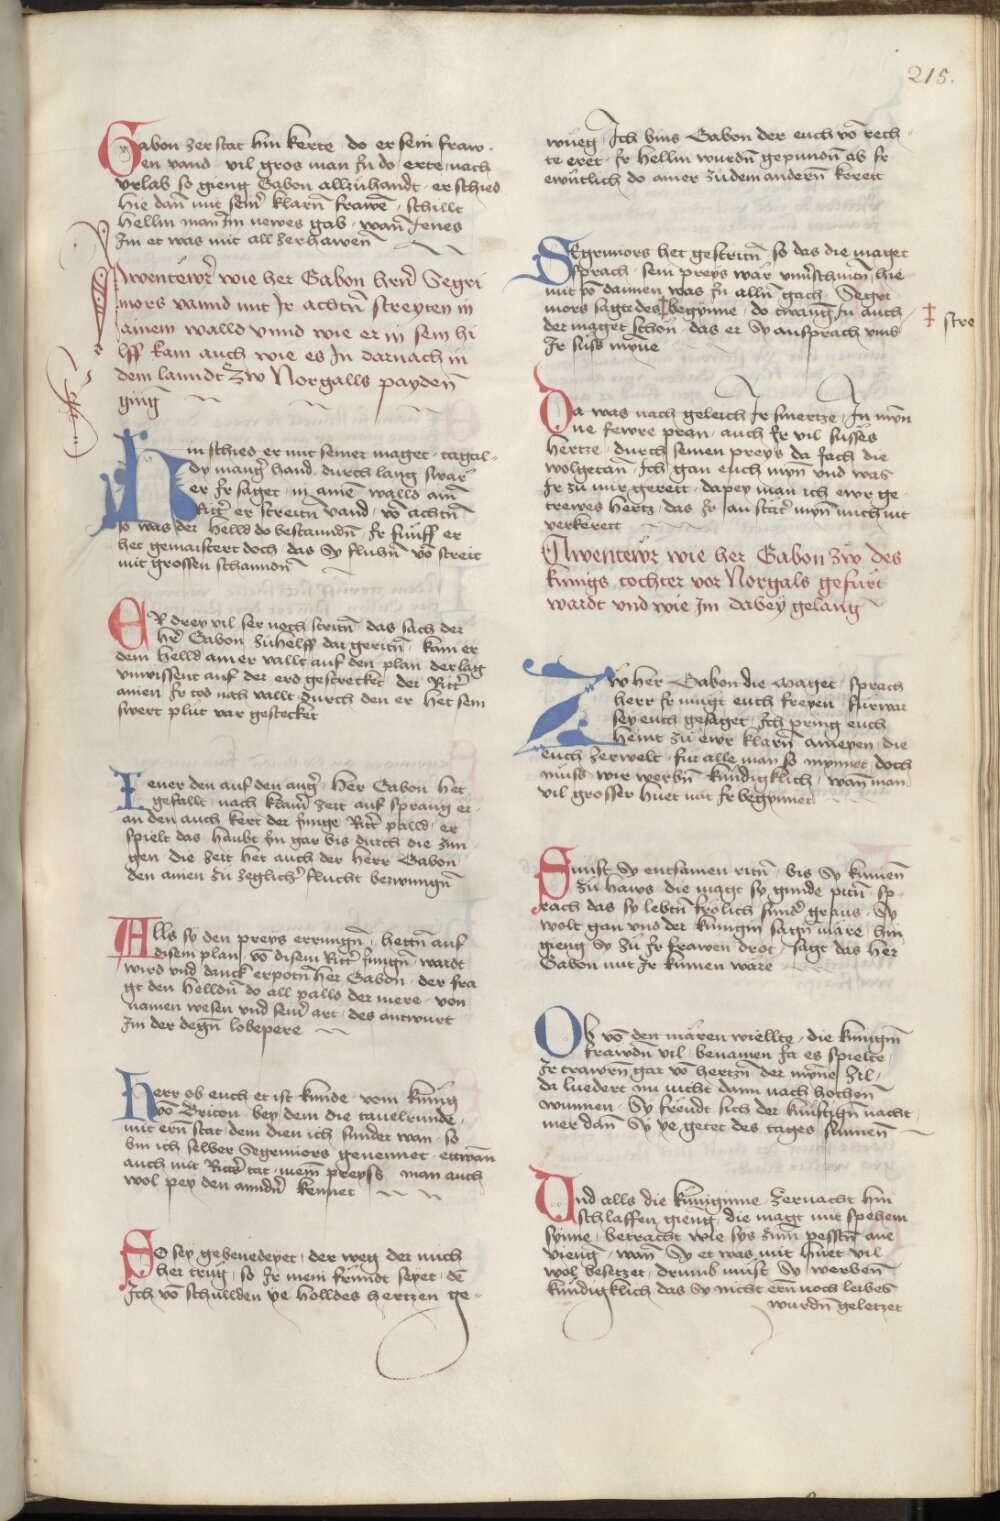 215.
Gabon zerstat hin kerte · do er sein fraw ·
en vand · vil gros man jn do erte · nach
vrlab so gieng Gabon allzuhandt · er schied
hie dan̄ mit sein̄ klarn̄ frawē · schillt
hellm man Im newes gab · wan̄ Jenes
Im et was mit all zerhawen̄
Awentewr̄ wie her Gabon hern̄ Segri
mors vannd mit Ir achtn̄ streyten in
ainem walld vnnd wie er in sein hi
lff kam auch wie es In darnach in
dem lanndt Zw Norgalls payden̄
ginḡ
Hin schied er mit seiner maget · tagal-
dy manḡ hand · durch lang swar
er Ir saget · in ainē walld ain̄
Ritt̄ er streitn̄ vand · vō achtn̄
so was der helld do bestanndn̄ · Ir fünff er
het gemaistert doch · das Sy fluhn̄ vō streit
mit grossen schanndn̄
ER drey vil ser noch stritn̄ · das sach der
her̄ Gabon · zuhelff dar geritn̄ · kam er
dem helld ainer vallt auf den plan · der lag
vnwissent auf der erd gestrecket · der Ritt̄
ainen Ir tod nah vallt · durch den er het sein
swert plut var gestecket
Iener den auf den anḡ · her Gabon het
gefallt · nach klain̄ zeit auf sprang er ·
an den auch kert der Junge Ritt̄ palld · er
spielt das haubt Im gar bis durch die zun
gen · die zeit het auch der herr Gabon
den ainen zu zeglich̄ flucht bezwungn̄
Alls sy den preys errungn̄ · hettn̄ auf
disem plan · vō disem Ritt̄ Jungn̄ · wardt
wird vnd danck erpotn̄ her Gabon · der fra
gt den helldn̄ do all palld der mere · von
namen wesen vnd sein̄ art · des antwurt
Im der degn̄ lobepere
Herr ob euch et ist kunde · vom kunig
vō Briton · bey dem die tauelrunde ·
mit ern̄ stat dem dien ich sunder wan · so
bin ich selber Segrimors genennet · ettwan̄
auch mit Ritt̄r tat · mein̄ preyss man auch
wol pey den anndn̄ kennet
SO sey gebenedeyet · der weg der mich
her trug · so Ir mein freundt seyet · dē
Ich vō schullden ye holldes hertzen ge-
wueg · Ich bins Gabon der euch vō rech-
te eret · Ir hellm wurdn̄ gepundn̄ ab Ir
ewn̄tlich do ainer zudem andern̄ keret
SEgrimors het gestritn̄ · so das die maget
sprach · sein preys wär vnu̓schnitn̄ · hie
mit vō dannen was In alln̄ gach · Segri
mors sagt des begynne · do twang In auch
der maget schön · das er Sy ansprach vmb
Ir suss mynne
‡ stre
Da was nach geleich Ir smertze · In myn
ne fewre pran · auch Ir vil susses
hertze · durch seinen preys da Jach die
wolgetan · Ich gan euch myn̄ vnd was
Ir zu mir geret · dapey man ich ewr ge
trewes hertz · das Ir an stät̄ myn̄ mich nit
verkerett
Awentewr wie her Gabon zw des
kunigs tochter vor Norgals gefurt
wardt vnd wie Im dabey gelang
Zw her Gabon die maget · sprach
herr Ir mugt euch freyen · furwar
sey euch gesaget · Ich pring euch
heint zu ewr klarn̄ ameyen · die
euch zerwelt · fur alle man so mynnet · doch
muss wir werbn̄ kundigklich · wann man
vil grosser huet mit Ir begynnet
Sunst Sy entsamen ritn̄ · bis Sy kumen̄
zu haws · die magt sy gunde pitn̄ · sp-
rach das sy lebtn̄ frolich sund̄ graus · Sy
wolt gan vnd der kunigin sagn̄ mare · hin
gieng Sy zu Ir frawen drot · sagt das her
Gabon mit Ir kumen wäre
Ob vō den mären wiellte · die kunigin̄
frawdn̄ vil · benamen Ja es spielte
Ir trawrn̄ gar vō hertzn̄ der myn̄e Zil ·
da luedert nu nicht dann nach hohen̄
wunnen · Sy freudt sich der kunftign̄ nacht
mer dan̄ Sy ye getet des tages sunnen̄
Und alls die kuniginne · zernacht hin
schlaffen gieng · die magt mit spehem
synne · betracht wie sys zum pesstn̄ ane
vieng · wan̄ Sy et was mit huet vil
wol besetzet · drumb must Sy werben̄
kundigklich das Sy nicht ern̄ noch leibes
wurdn̄ geletzet